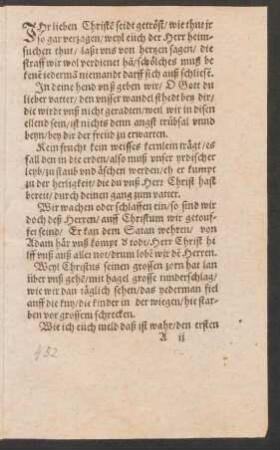 IHr lieben Christē seidt getröst/ wie thut jr
so gar verzagen/ weyl euch der Herr heim-
suchen thut/ laßt vns von hertzen sagen/ die
straff wir wol verdienet hā/ schölches muß be
kenē iedermā niemandt darff sich auß schließē.
In deine hend vnß geben wir/ O Gott du
lieber vatter/ den vnser wandel sthedt bey dir/
die wirdt vnß nicht geradten/ weil wir in disen
ellend sein/ ist nichts denn angst trübsal vnnd
beyn/ bey dir der freüd zu erwarten.
Kein frucht kein weisses kernlein trägt/ es
fall den in die erden/ also muß vnser yrdischer
leyb/ zu staub vnd äschen werden/ eh er kumpt
zu der herligkeit/ die du vnß Herr Christ hast
bereit/ durch deinen gang zum vatter.
Wir wachen oder schlaffen ein/ so sind wir
doch deß Herren/ auff Christum wir getouf-
fet seind/ Er kan dem Satan wehren/ von
Adam här vnß kompt d todt/ Herr Christ hi
lff vnß auß aller not/ drum lobē wir dē Herren.
Weyl Christus seinen grossen zorn hat lan
über vnß gehē/ mit hagel grosse wunderschlag/
wie wir dan täglich sehen/ das yederman fiel
auff die kny/ die kinder in der wiegen/ hie star-
ben vor grossem schrecken.
Wie ich euch meld daß ist wahr/ den ersten
A ij